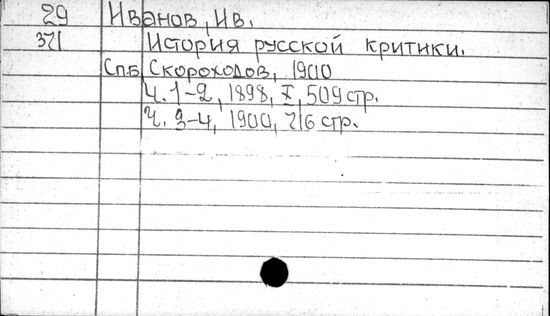 29 Иванов, Ив.
371 История русской критики.
Спб Скороходов, 1900
Ч. 1-2, 1898, X, 509 стр.
Ч. 3-4, 1900, 716 стр.